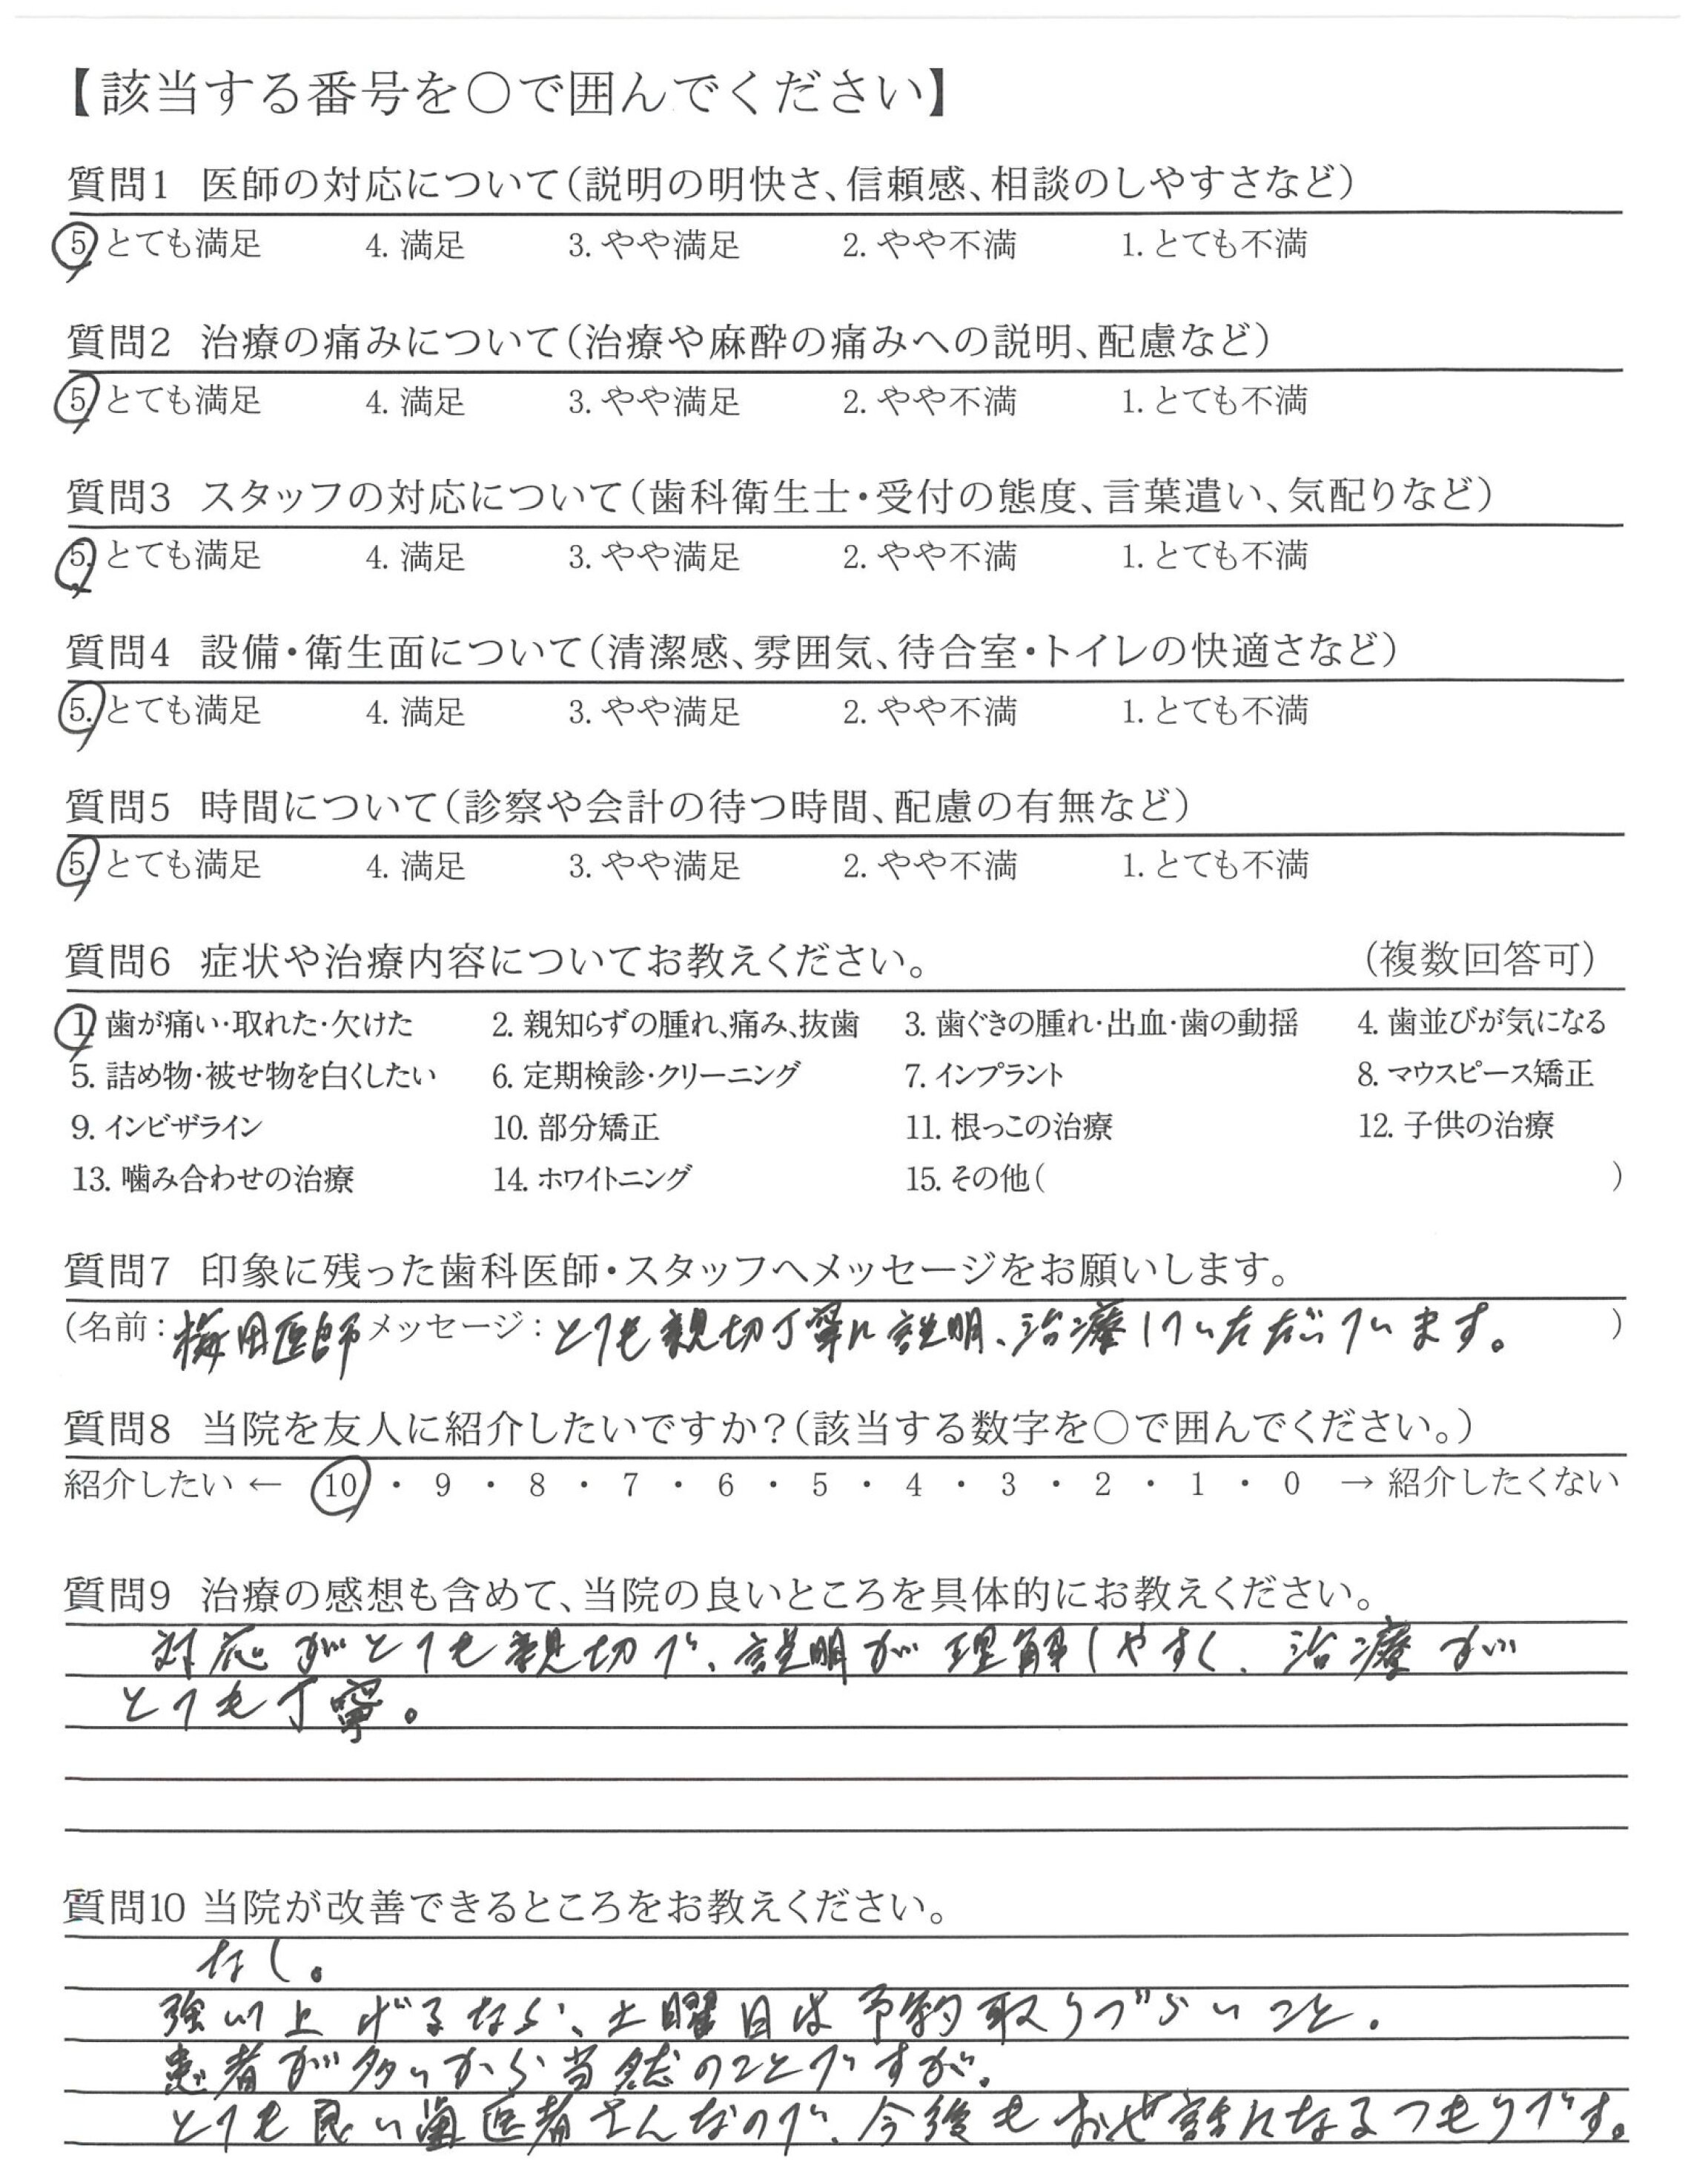 【該当する番号を○で囲んでください】
質問1 医師の対応について(説明の明快さ、信頼感、相談のしやすさなど)
5. とても満足 4. 満足 3. やや満足 2. やや不満 1. とても不満
質問2 治療の痛みについて(治療や麻酔の痛みへの説明、配慮など)
5. とても満足 4. 満足 3. やや満足 2. やや不満 1. とても不満
質問3 スタッフの対応について(歯科衛生士・受付の態度、言葉遣い、気配りなど)
5. とても満足 4. 満足 3. やや満足 2. やや不満 1. とても不満
質問4 設備・衛生面について(清潔感、雰囲気、待合室・トイレの快適さなど)
5. とても満足 4. 満足 3. やや満足 2. やや不満 1. とても不満
質問5 時間について(診察や会計の待つ時間、配慮の有無など)
5. とても満足 4. 満足 3. やや満足 2. やや不満 1. とても不満
質問6 症状や治療内容についてお教えください。 (複数回答可)
1. 歯が痛い・取れた・欠けた 2. 親知らずの腫れ、痛み、抜歯 3. 歯ぐきの腫れ・出血・歯の動揺 4. 歯並びが気になる
5. 詰め物・被せ物を白くしたい 6. 定期検診・クリーニング 7. インプラント 8. マウスピース矯正
9. インビザライン 10. 部分矯正 11. 根っこの治療 12. 子供の治療
13. 噛み合わせの治療 14. ホワイトニング 15. その他( )
質問7 印象に残った歯科医師・スタッフへメッセージをお願いします。
(名前:梅田医師 メッセージ:とても親切丁寧に説明、治療していただいています。 )
質問8 当院を友人に紹介したいですか?(該当する数字を○で囲んでください。)
紹介したい ← 10 ・ 9 ・ 8 ・ 7 ・ 6 ・ 5 ・ 4 ・ 3 ・ 2 ・ 1 ・ 0 → 紹介したくない
質問9 治療の感想も含めて、当院の良いところを具体的にお教えください。
対応がとても親切で、説明が理解しやすく、治療が
とても丁寧。
質問10 当院が改善できるところをお教えください。
なし。
強いて上げるなら、土曜日は予約取りづらいこと。
患者が多いから当然のことですが。
とても良い歯医者さんなので、今後もお世話になるつもりです。